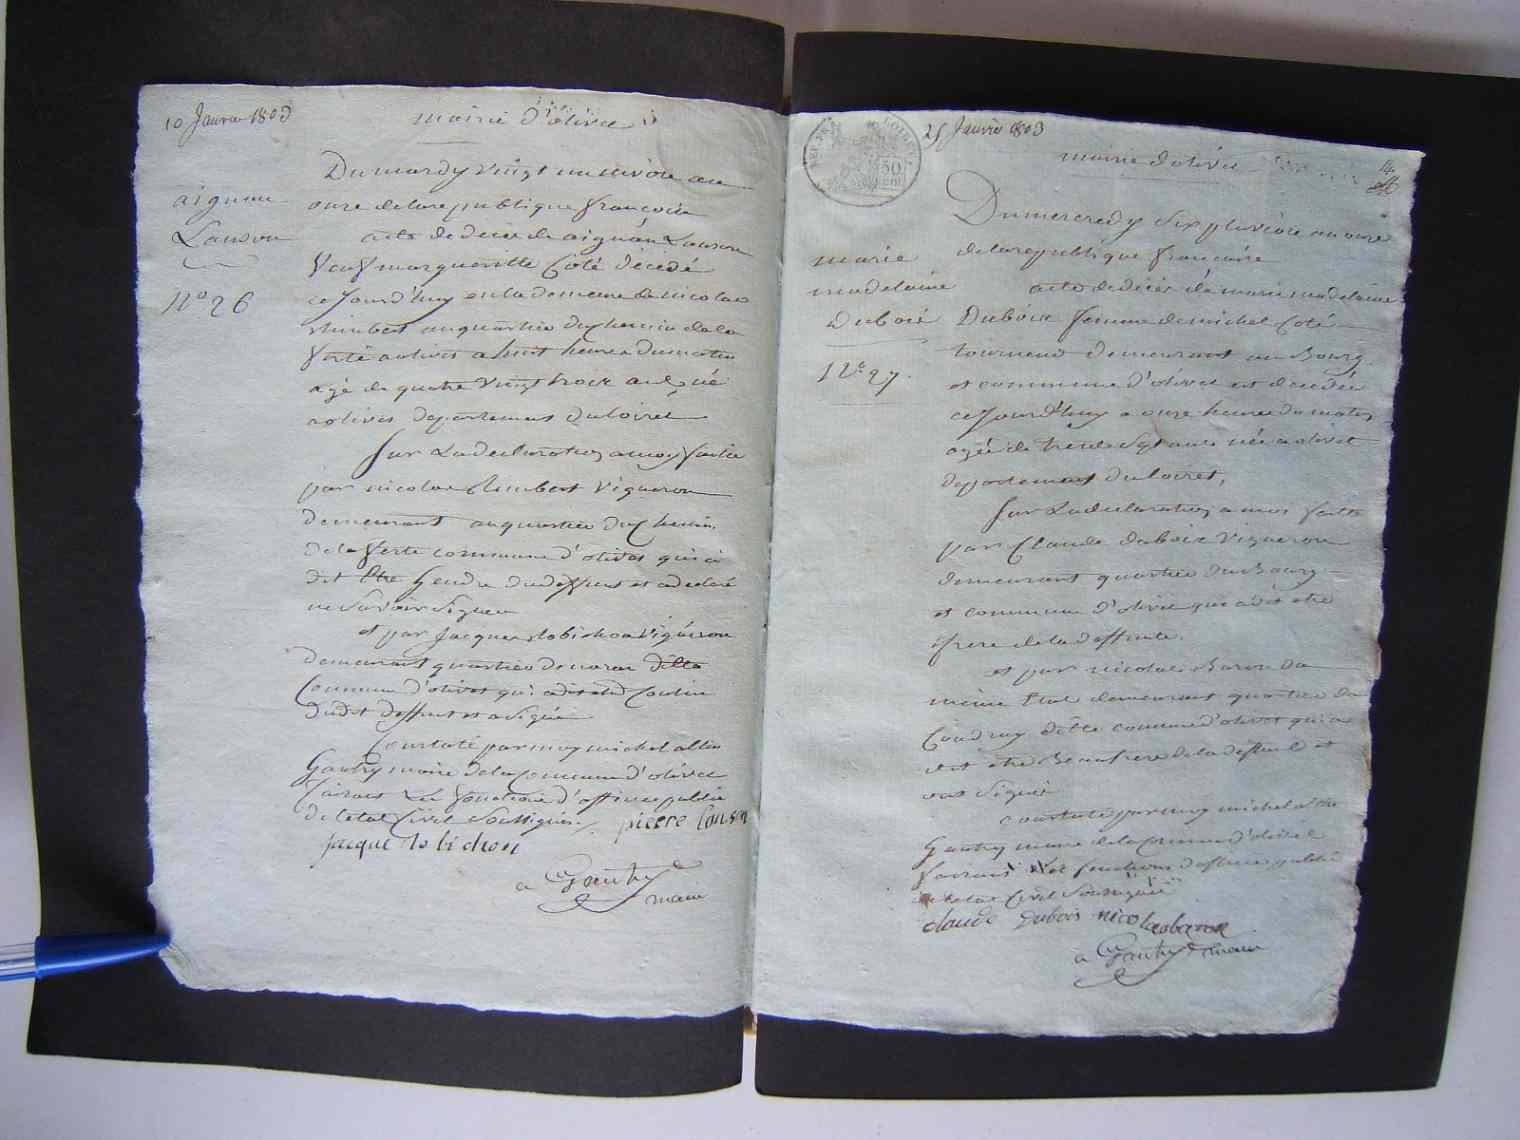 10 Janvier 1803
mairie d'olivet
Du mardy vingt nivose an
onze de la republique françoise
aignan
Lanson
N° 26
acte de deces de aignan Lanson
veuf margueritte Coté décédé
ce Jourd'huy en la demeure de nicolas
himbert au quartier du chemin de la
ferté a olivet a huit heures du matin
agé de quatre vingt trois ans né
a olivet departement du loiret
Sur La declaration a moy faitte
par nicolas himbert vigneron
demeurant au quartier du Chemin
de la ferté commune d'olivet qui a
dit être Gendre dudeffunt et a declaré
ne savoir signer
et par Jacques robichon vigneron
demeurant quartier de ditte
Commune d'olivet qui a dit etre Cousin
dudit deffunt et a signé
Constaté par moy michel albin
Gautry maire de la Commune d'olivet
faisant Les fonctions d'officier public
de l'etat Civil Soussigné. pierre lanson
jacque robichon
a Gautry
maire
DEP. DU LOIRET
50
CENT
25 Janvier 1803
mairie d'olivet
14
Du mercredy six pluviose an onze
de la republique francaise
marie
madelaine
Duboié
N° 27.
acte de décés de marie madelaine
Dubois femme de michel Coté
tourneur demeurant au Bourg
et commune d'olivet est decedée
ce Jourd'huy a onze heures du matin
agée de trente sept ans née a olivet
departement du loiret,
Sur La declaration a moi faitte
par Claude dubois vigneron
demeurant quartier du Bourg
et commune d'olivet qui a dit etre
frere de la deffunte.
et par nicolas Baron du
même etat demeurant quartier du
Coudray ditte commune d'olivet qui a
dit etre Beaufrere de la deffunte et
ont signé
Constaté par moy michel albin
Gautry maire de la Commune d'olivet
faisant Les fonctions d'officier public
de l'etat Civil Soussigné
claude Dubois nicolas baron
a Gautry maire